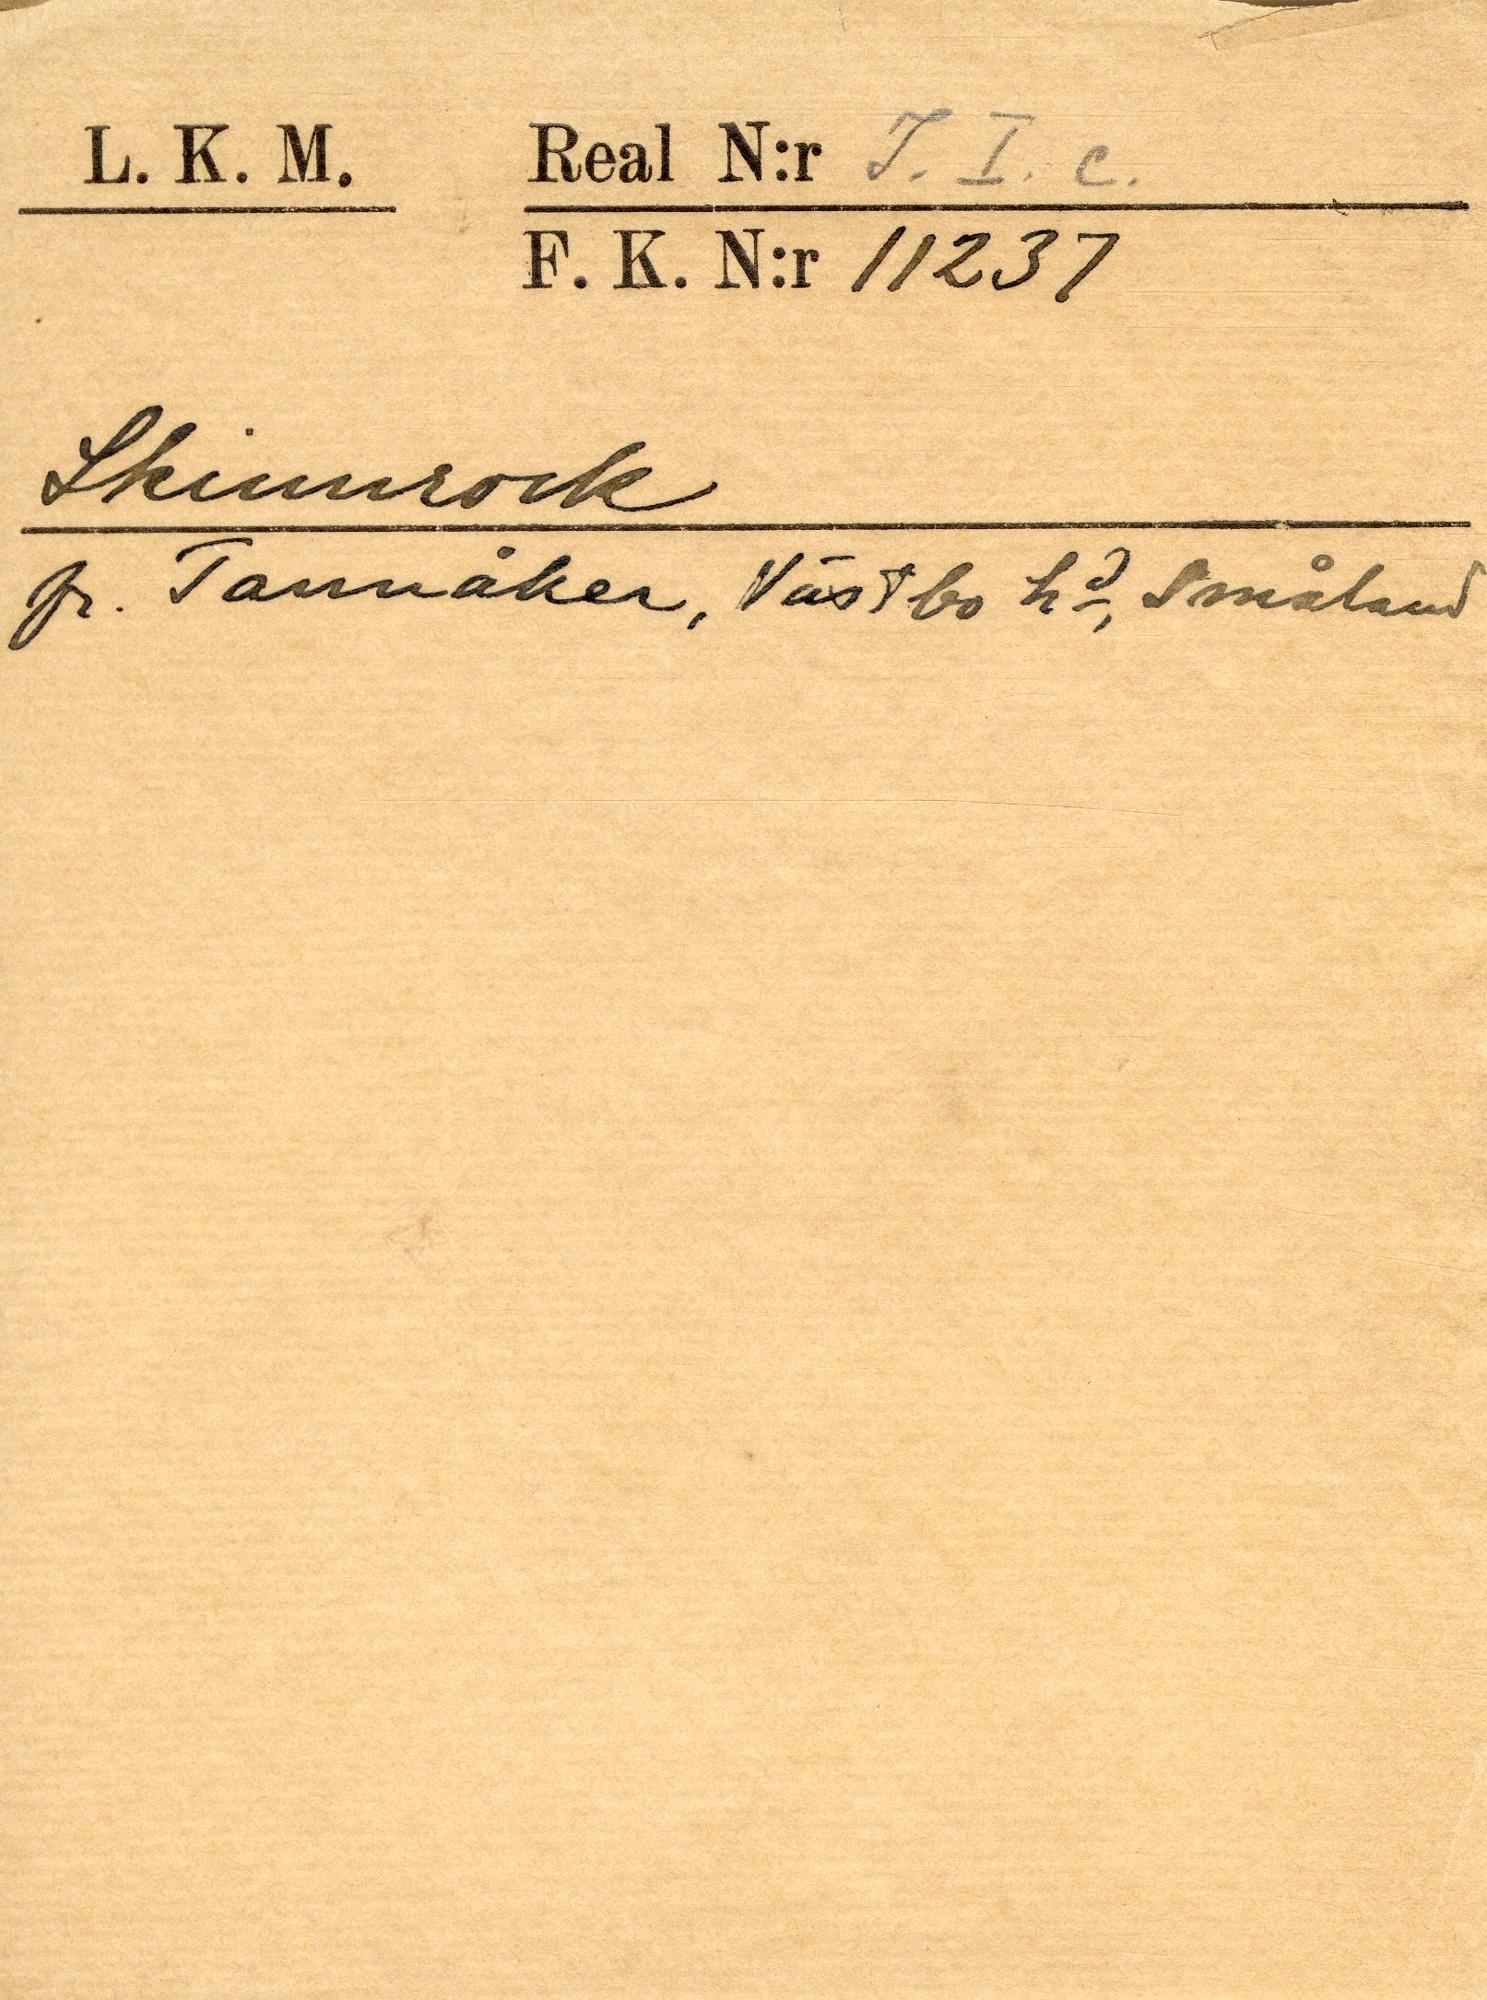 L. K. M. Real N:r T. I. c.
F. K. N:r 11237
Skinnrock
fr. Tannåker, Västbo hd, Småland